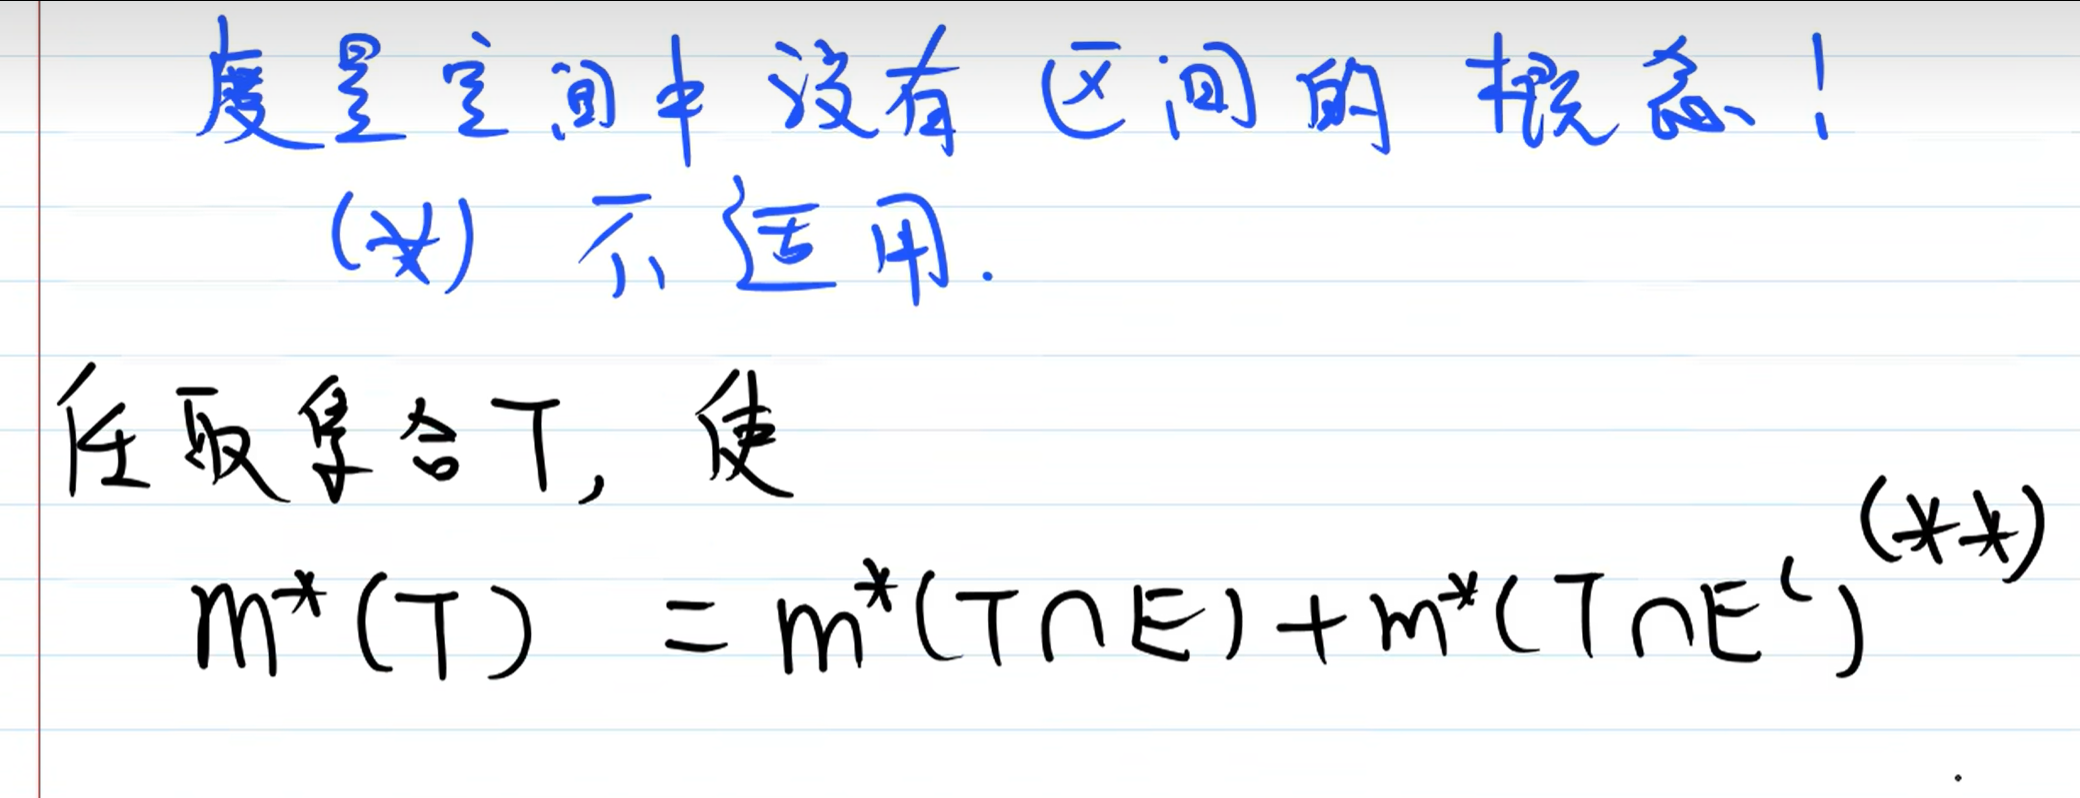 度量空间中没有区间的概念！
(*) 不适用.
任取集合T, 使
(**)
m*(T) = m*(T∩E)+m*(T∩Eᶜ)